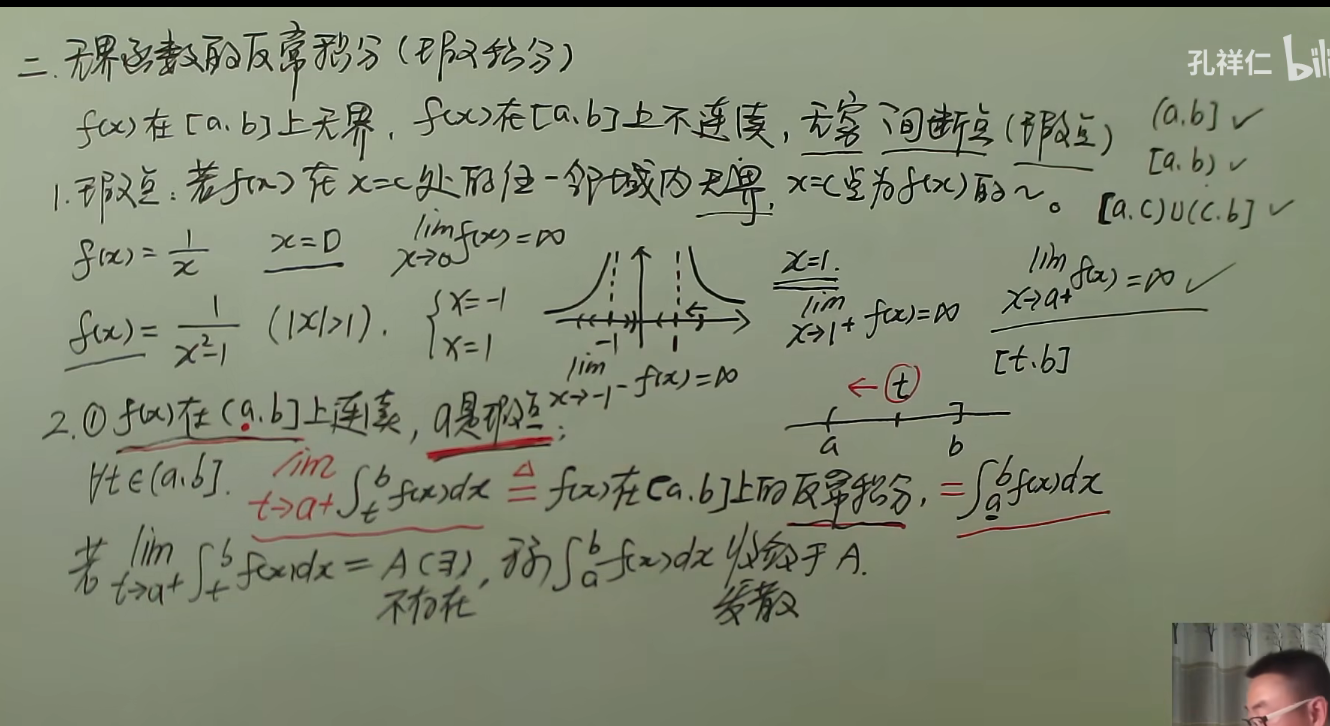 二. 无界函数的反常积分(瑕积分)
孔祥仁 bili
f(x)在[a.b]上无界, f(x)在[a.b]上不连续, 无穷间断点(瑕点)
(a.b] ✓
[a.b) ✓
[a.c)∪(c.b] ✓
1. 瑕点: 若f(x)在x=c处的任一邻域内无界, x=c点为f(x)的~。
f(x)=1/x x=0 lim x→0 f(x)=∞
f(x)=1/(x²-1) (|x|>1). {x=-1 x=1
-1 1
lim x→-1⁻ f(x)=∞
x=1.
lim x→1⁺ f(x)=∞
lim x→a+ f(x)=∞ ✓
[t.b]
← t
a b
2. ① f(x)在(a.b]上连续, a是瑕点;
∀t∈(a.b]. lim t→a+ ∫_t^b f(x)dx ≜ f(x)在[a.b]上的反常积分, = ∫_a^b f(x)dx
若 lim t→a+ ∫_t^b f(x)dx = A(∃), 称∫_a^b f(x)dx 收敛于A.
不存在 发散